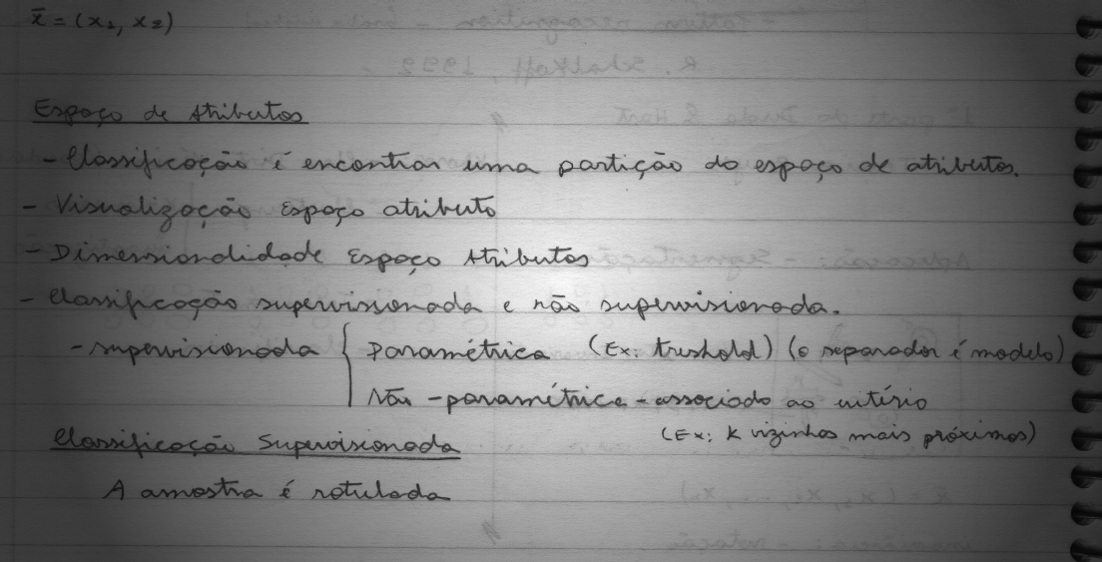 x̄ = (x₁, x₂)
Espaço de Atributos
- Classificação é encontrar uma partição do espaço de atributos.
- Visualização Espaço atributo
- Dimensionalidade Espaço Atributos
- Classificação supervisionada e não supervisionada.
- supervisionada { Paramétrica (Ex: treshold) (o separador é modelo)
Não-paramétrica - associado ao critério
(Ex: K vizinhos mais próximos)
Classificação Supervisionada
A amostra é rotulada